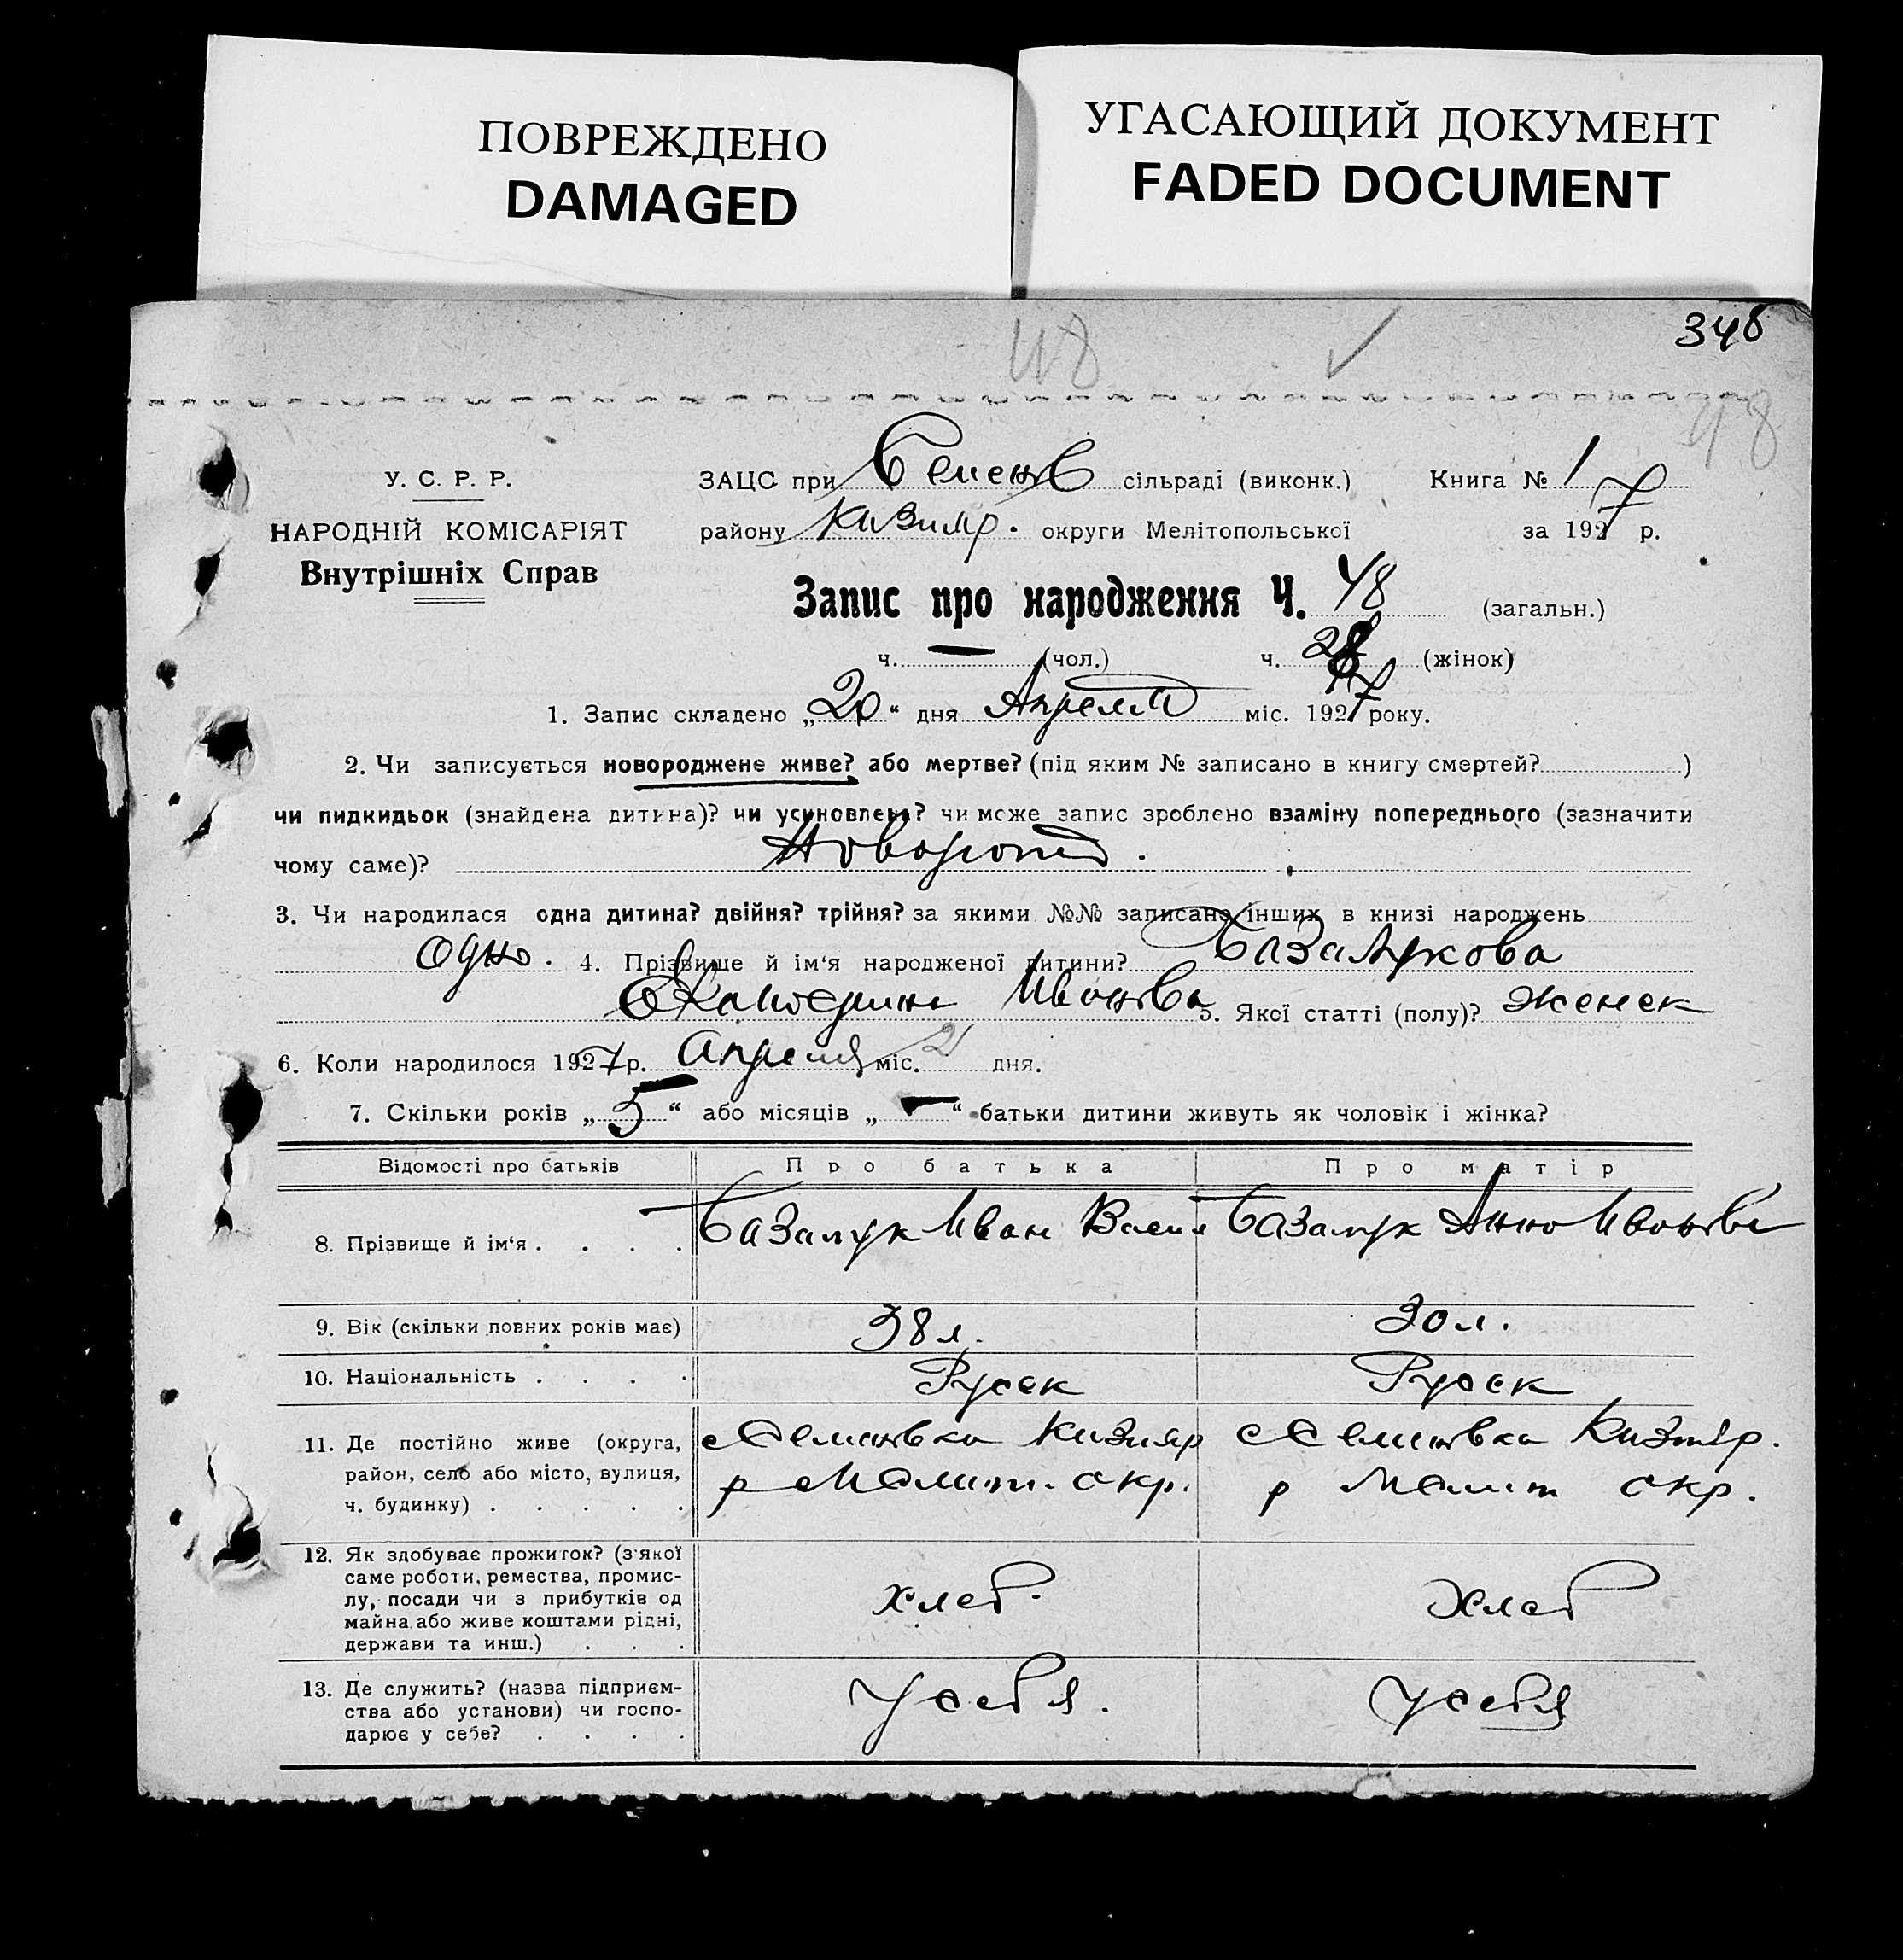 ПОВРЕЖДЕНО
DAMAGED
УГАСАЮЩИЙ ДОКУМЕНТ
FADED DOCUMENT
348
48 ✓
48
У. С. Р. Р.
НАРОДНІЙ КОМІСАРІЯТ
Внутрішніх Справ
ЗАЦС при Семенов сільраді (виконк.) Книга № 1
району Кизияр. округи Мелітопольської за 1927 р.
Запис про народження Ч. 48 (загальн.)
ч. — (чол.) ч. 28 (жінок)
1. Запис складено „20“ дня Апреля міс. 1927 року.
2. Чи записується новороджене живе? або мертве? (під яким № записано в книгу смертей? )
чи пидкидьок (знайдена дитина)? чи усиновлена? чи може запис зроблено взаміну попереднього (зазначити
чому саме)? Новорожд.
3. Чи народилася одна дитина? двійня? трійня? за якими №№ записано інших в книзі народжень
одно. 4. Прізвище й ім‘я народженої дитини? Базалукова
Екатерина Иванов 5. Якої статті (полу)? женск
6. Коли народилося 1927 р. Апреля міс. 2 дня.
7. Скільки років „5“ або місяців „—“ батьки дитини живуть як чоловік і жінка?
Відомості про батьків Про батька Про матір
8. Прізвище й ім‘я . . . . Базалук Иван Васил Базалук Анна Иванов
9. Вік (скільки повних років має) 38 л. 30 л.
10. Національність . . . . Русск Русск
11. Де постійно живе (округа,
район, село або місто, вулиця,
ч. будинку) . . . . .
с Семеновка Кизияр
р Мелит. окр.
с Семеновка Кизияр.
р Мелит окр.
12. Як здобуває прожиток? (з‘якої
саме роботи, ремества, промис-
лу, посади чи з прибутків од
майна або живе коштами рідні,
держави та инш.) . . .
хлеб. Хлеб
13. Де служить? (назва підприєм-
ства або установи) чи госпо-
дарює у себе? . . . .
У себя. У себя